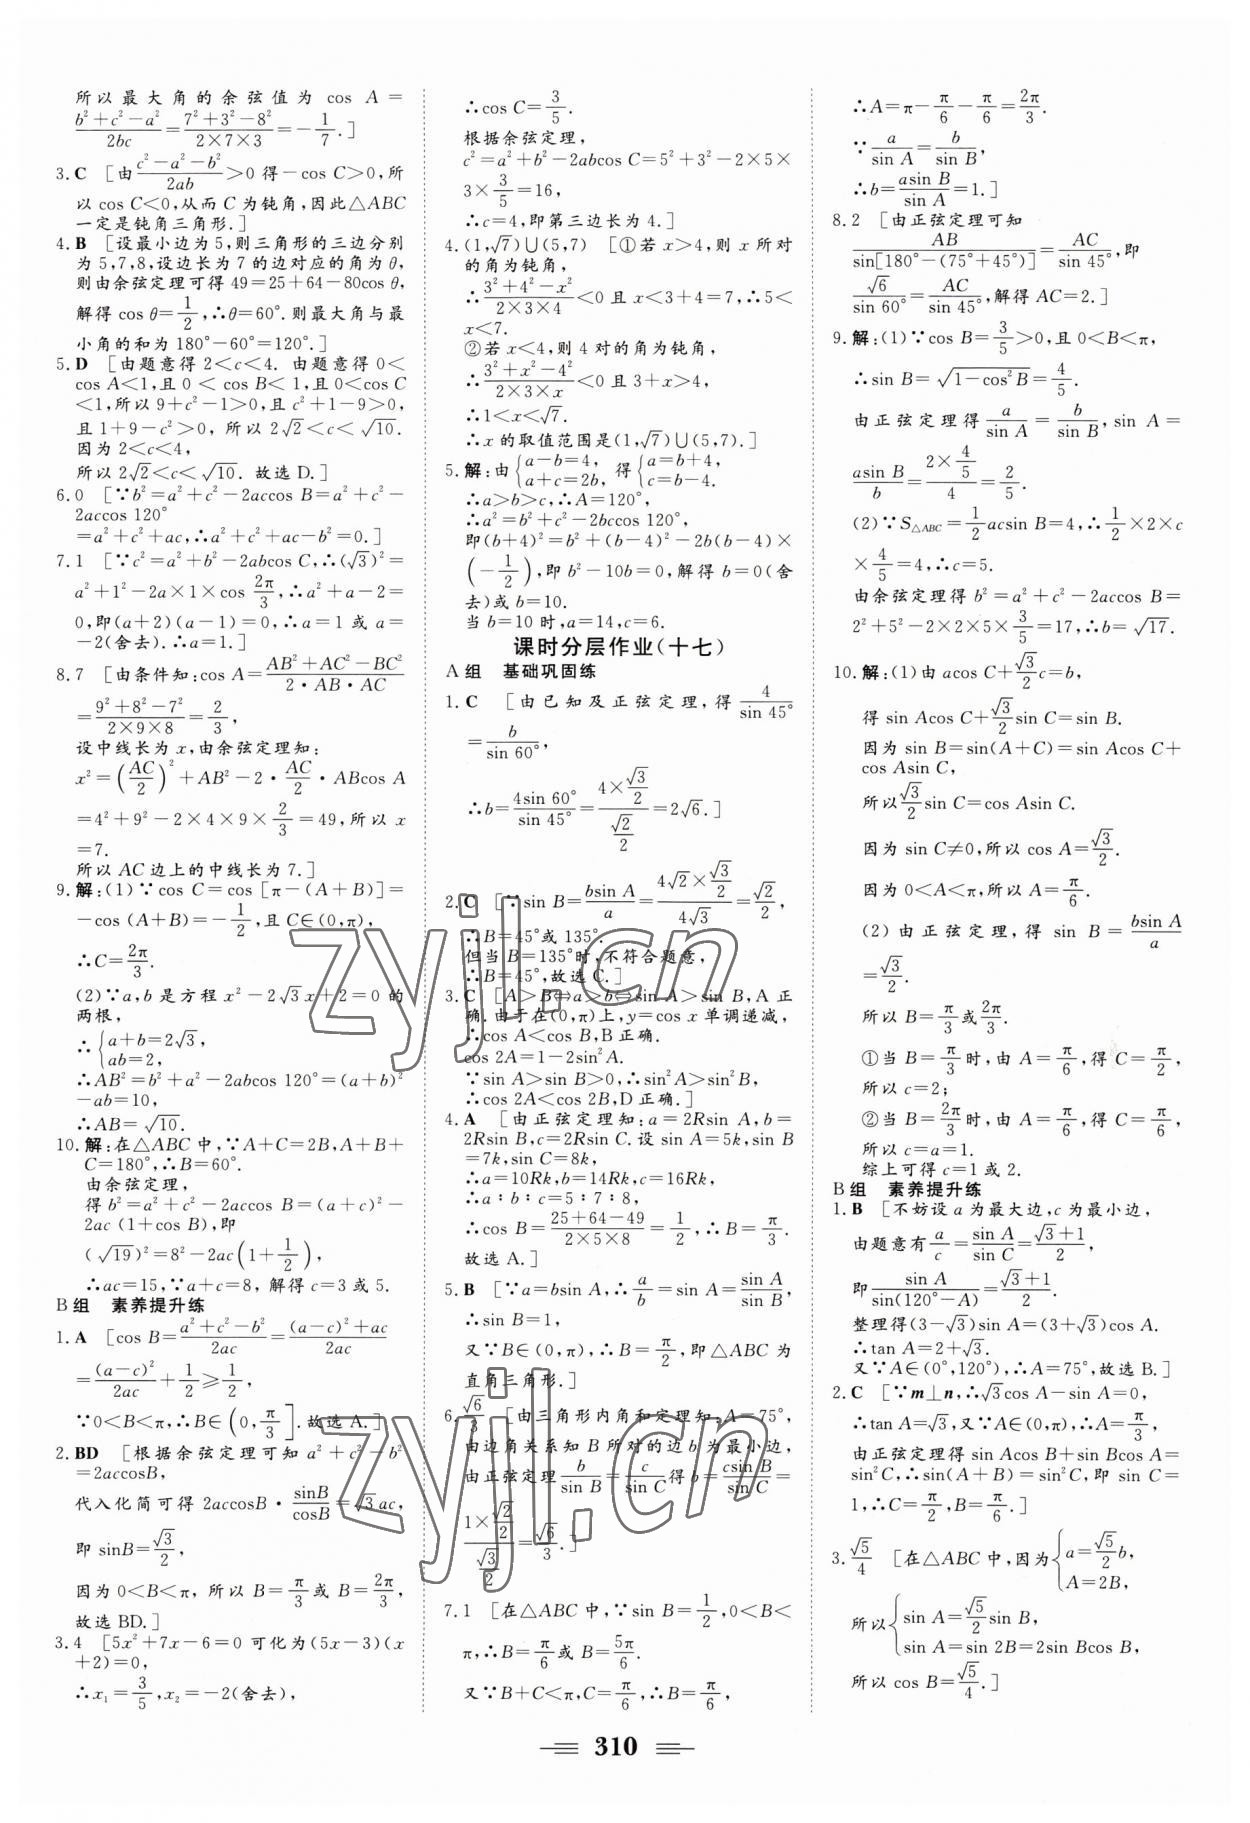 所以最大角的余弦值为 cos A=
(b²+c²-a²)/(2bc)=(7²+3²-8²)/(2×7×3)=-1/7.]
3.C [由(c²-a²-b²)/(2ab)>0得-cos C>0,所
以cos C<0,从而C为钝角,因此△ABC
一定是钝角三角形.]
4.B [设最小边为5,则三角形的三边分别
为5,7,8,设边长为7的边对应的角为θ,
则由余弦定理可得49=25+64-80cos θ,
解得cos θ=1/2,∴θ=60°.则最大角与最
小角的和为180°-60°=120°.]
5.D [由题意得2<c<4. 由题意得0<
cos A<1,且0<cos B<1,且0<cos C
<1,所以9+c²-1>0,且c²+1-9>0,
且1+9-c²>0, 所以2√2<c<√10.
因为2<c<4,
所以2√2<c<√10. 故选D.]
6.0 [∵b²=a²+c²-2accos B=a²+c²-
2accos 120°
=a²+c²+ac,∴a²+c²+ac-b²=0.]
7.1 [∵c²=a²+b²-2abcos C,∴(√3)²=
a²+1²-2a×1×cos 2π/3,∴a²+a-2=
0,即(a+2)(a-1)=0,∴a=1或a=
-2(舍去).∴a=1.]
8.7 [由条件知:cos A=(AB²+AC²-BC²)/(2·AB·AC)
=(9²+8²-7²)/(2×9×8)=2/3,
设中线长为x,由余弦定理知:
x²=(AC/2)²+AB²-2·AC/2·ABcos A
=4²+9²-2×4×9×2/3=49,所以x
=7.
所以AC边上的中线长为7.]
9.解:(1)∵cos C=cos[π-(A+B)]=
-cos(A+B)=-1/2,且C∈(0,π),
∴C=2π/3.
(2)∵a,b是方程x²-2√3x+2=0的
两根,
∴{a+b=2√3,
ab=2,
∴AB²=b²+a²-2abcos 120°=(a+b)²
-ab=10,
∴AB=√10.
10.解:在△ABC中,∵A+C=2B,A+B+
C=180°,∴B=60°.
由余弦定理,
得b²=a²+c²-2accos B=(a+c)²-
2ac(1+cos B),即
(√19)²=8²-2ac(1+1/2),
∴ac=15,∵a+c=8, 解得c=3或5.
B组 素养提升练
1.A [cos B=(a²+c²-b²)/(2ac)=((a-c)²+ac)/(2ac)
=(a-c)²/(2ac)+1/2≥1/2,
∵0<B<π,∴B∈(0,π/3].故选A.]
2.BD [根据余弦定理可知a²+c²-b²
=2accosB,
代入化简可得2accosB·sinB/cosB=√3ac,
即sinB=√3/2,
因为0<B<π,所以B=π/3或B=2π/3,
故选BD.]
3.4 [5x²+7x-6=0可化为(5x-3)(x
+2)=0,
∴x₁=3/5,x₂=-2(舍去),
∴cos C=3/5.
根据余弦定理,
c²=a²+b²-2abcos C=5²+3²-2×5×
3×3/5=16,
∴c=4,即第三边长为4.]
4.(1,√7)∪(5,7) [①若x>4,则x所对
的角为钝角,
∴(3²+4²-x²)/(2×3×4)<0且x<3+4=7,∴5<
x<7.
②若x<4,则4对的角为钝角,
∴(3²+x²-4²)/(2×3×x)<0且3+x>4,
∴1<x<√7.
∴x的取值范围是(1,√7)∪(5,7).]
5.解:由{a-b=4, a+c=2b, 得{a=b+4, c=b-4.
∴a>b>c,∴A=120°,
∴a²=b²+c²-2bccos 120°,
即(b+4)²=b²+(b-4)²-2b(b-4)×
(-1/2),即b²-10b=0,解得b=0(舍
去)或b=10.
当b=10时,a=14,c=6.
课时分层作业(十七)
A组 基础巩固练
1.C [由已知及正弦定理,得4/sin 45°
=b/sin 60°,
∴b=4sin 60°/sin 45°=(4×√3/2)/(√2/2)=2√6.]
2.C [∵sin B=bsin A/a=(4√2×√3/2)/(4√3)=√2/2,
∴B=45°或135°.
但当B=135°时,不符合题意,
∴B=45°,故选C.]
3.C [A>B⇔a>b⇔sin A>sin B,A正
确.由于在(0,π)上,y=cos x单调递减,
∴cos A<cos B,B正确.
cos 2A=1-2sin²A.
∵sin A>sin B>0,∴sin²A>sin²B,
∴cos 2A<cos 2B,D正确.]
4.A [由正弦定理知:a=2Rsin A,b=
2Rsin B,c=2Rsin C.设sin A=5k,sin B
=7k,sin C=8k,
∴a=10Rk,b=14Rk,c=16Rk,
∴a∶b∶c=5∶7∶8,
∴cos B=(25+64-49)/(2×5×8)=1/2,∴B=π/3.
故选A.]
5.B [∵a=bsin A,∴a/b=sin A=sin A/sin B,
∴sin B=1,
又∵B∈(0,π),∴B=π/2,即△ABC为
直角三角形.]
6.√6/3 [由三角形内角和定理知:A=75°,
由边角关系知B所对的边b为最小边,
由正弦定理b/sin B=c/sin C得b=csin B/sin C=
(1×√2/2)/(√3/2)=√6/3.]
7.1 [在△ABC中,∵sin B=1/2,0<B<
π,∴B=π/6或B=5π/6.
又∵B+C<π,C=π/6,∴B=π/6,
∴A=π-π/6-π/6=2π/3.
∵a/sin A=b/sin B,
∴b=asin B/sin A=1.]
8.2 [由正弦定理可知
AB/sin[180°-(75°+45°)]=AC/sin 45°,即
√6/sin 60°=AC/sin 45°,解得AC=2.]
9.解:(1)∵cos B=3/5>0,且0<B<π,
∴sin B=√(1-cos²B)=4/5.
由正弦定理得a/sin A=b/sin B,sin A=
asin B/b=(2×4/5)/4=2/5.
(2)∵S△ABC=1/2acsin B=4,∴1/2×2×c
×4/5=4,∴c=5.
由余弦定理得b²=a²+c²-2accos B=
2²+5²-2×2×5×3/5=17,∴b=√17.
10.解:(1)由acos C+√3/2c=b,
得sin Acos C+√3/2sin C=sin B.
因为sin B=sin(A+C)=sin Acos C+
cos Asin C,
所以√3/2sin C=cos Asin C.
因为sin C≠0,所以cos A=√3/2.
因为0<A<π,所以A=π/6.
(2)由正弦定理,得sin B=bsin A/a
=√3/2.
所以B=π/3或2π/3.
①当B=π/3时,由A=π/6,得C=π/2,
所以c=2;
②当B=2π/3时,由A=π/6,得C=π/6,
所以c=a=1.
综上可得c=1或2.
B组 素养提升练
1.B [不妨设a为最大边,c为最小边,
由题意有a/c=sin A/sin C=(√3+1)/2,
即sin A/sin(120°-A)=(√3+1)/2.
整理得(3-√3)sin A=(3+√3)cos A.
∴tan A=2+√3.
又∵A∈(0°,120°),∴A=75°,故选B.]
2.C [∵m⊥n,∴√3cos A-sin A=0,
∴tan A=√3,又∵A∈(0,π),∴A=π/3,
由正弦定理得sin Acos B+sin Bcos A=
sin²C,∴sin(A+B)=sin²C,即sin C=
1,∴C=π/2,B=π/6.]
3.√5/4 [在△ABC中,因为{a=√5/2b,
A=2B,
所以{sin A=√5/2sin B,
sin A=sin 2B=2sin Bcos B,
所以cos B=√5/4.]
310
zyjl.cn
zyjl.cn